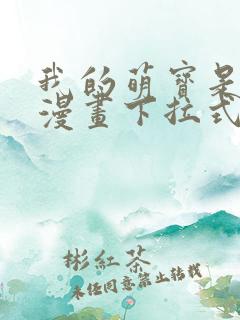 我的萌寶是
漫畫下拉式
彬紅茶
未经同意禁止转载